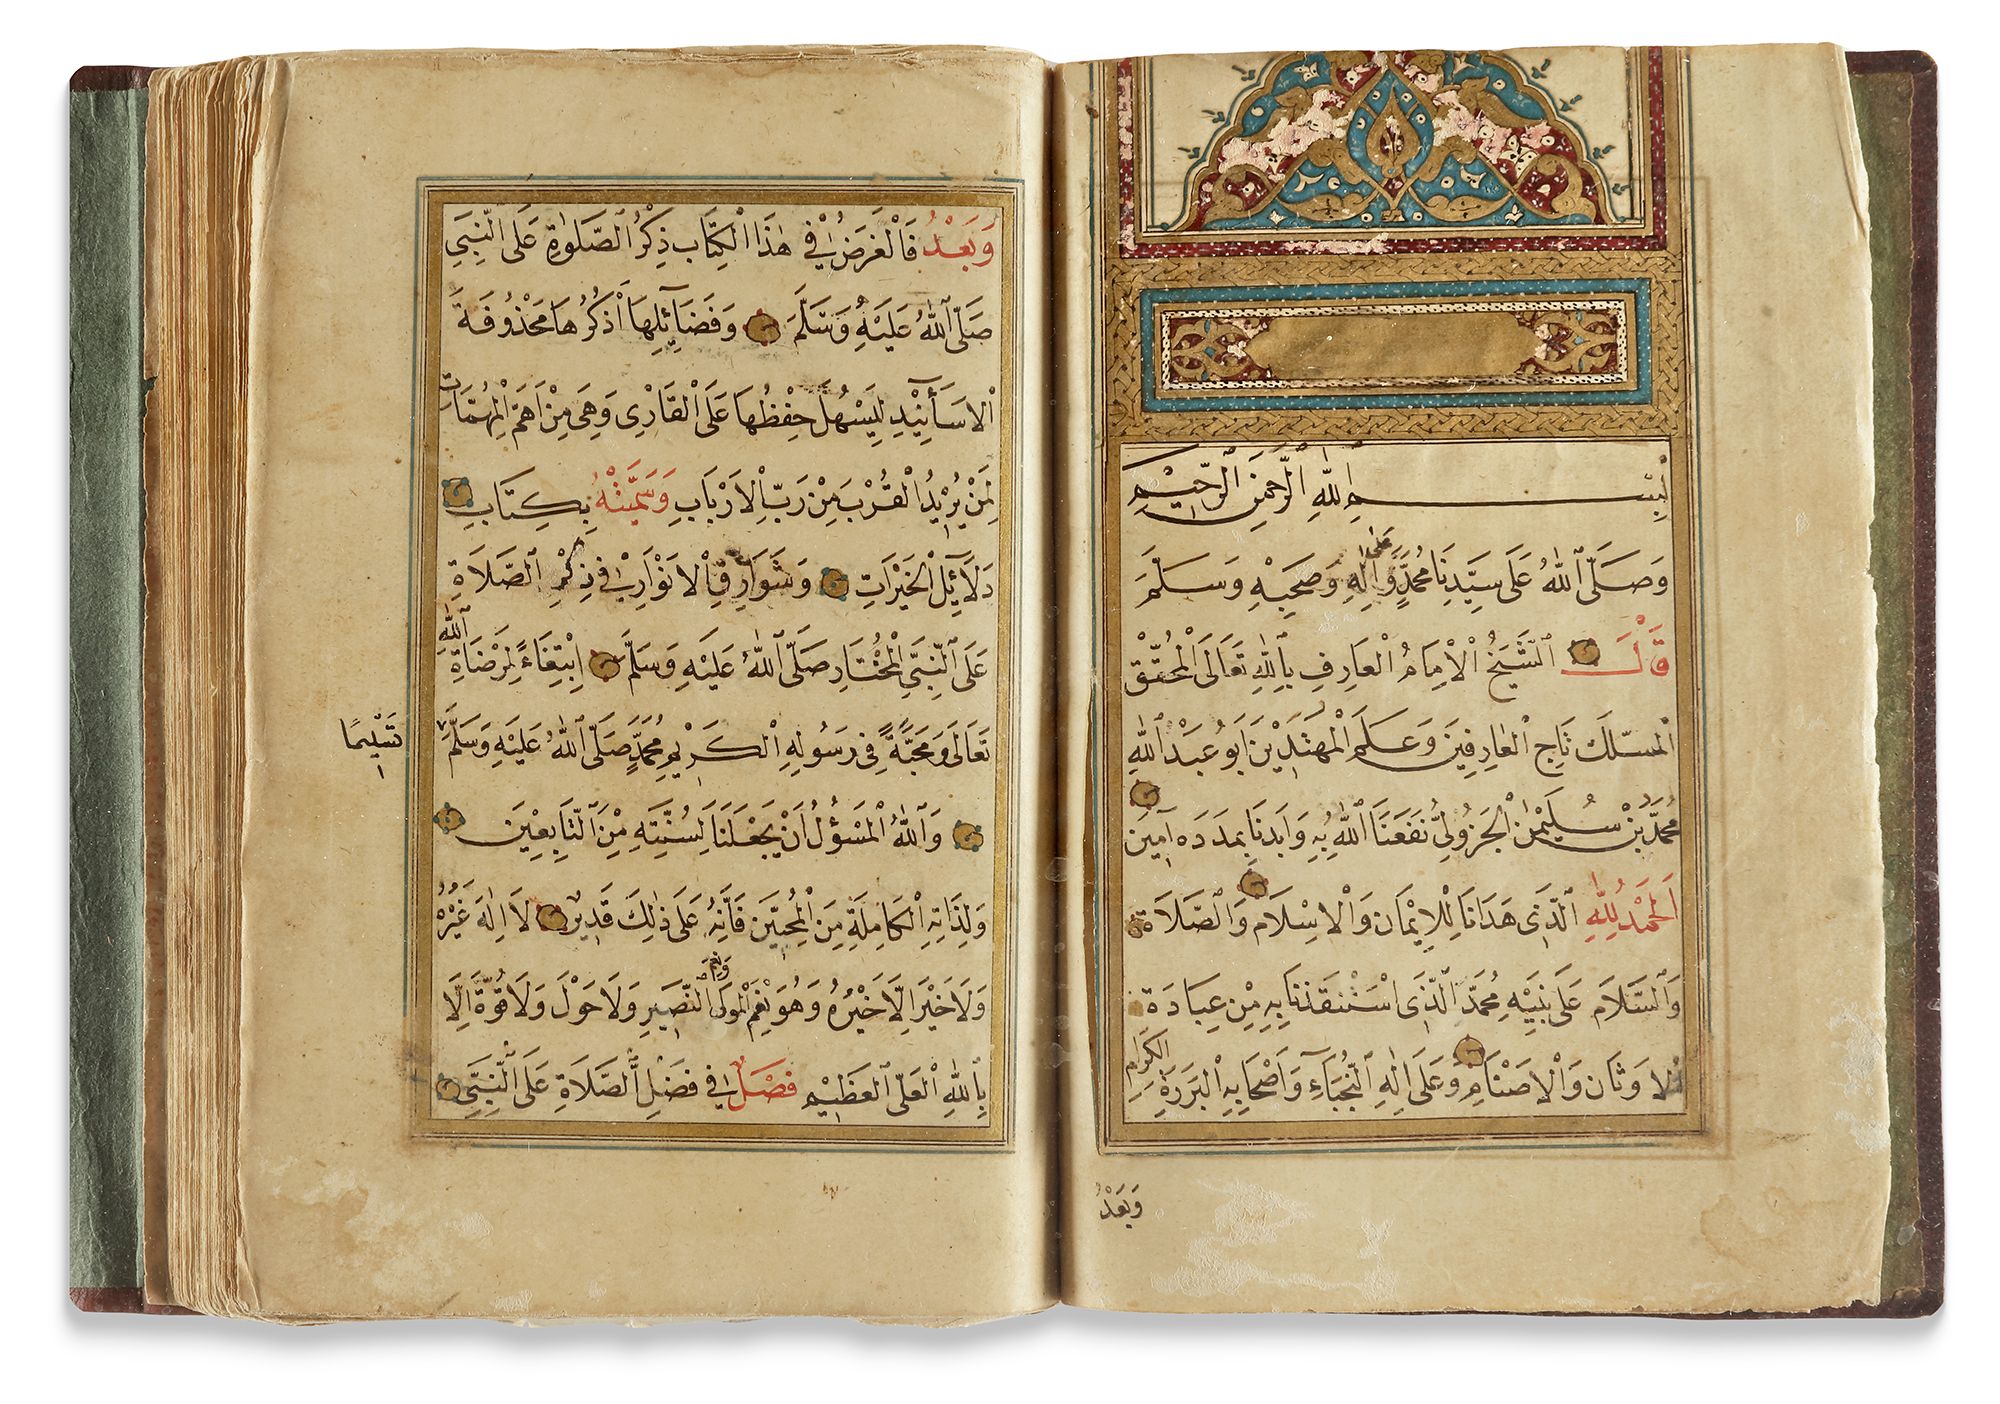 بِسْمِ اللّٰهِ الرَّحْمٰنِ الرَّحِيْمِ
وَصَلَّى اللّٰهُ عَلٰى سَيِّدِنَا مُحَمَّدٍ وَّعَلٰى اٰلِهِ وَصَحْبِهِ وَسَلَّمَ
قَالَ الشَّيْخُ الْاِمَامُ الْعَارِفِ بِاللّٰهِ تَعَالَى الْمُحَقِّقِ
الْمَسْلَكَ تَاجِ الْعَارِفِينَ وَعَلَمِ الْمُهْتَدِيْنَ اَبُو عَبْدِ اللّٰهِ
مُحَمَّدُ بْنُ سُلَيْمٰنَ الْجَزُولِيُّ نَفَعَنَا اللّٰهُ بِهِ وَاَمَدَنَا بِمَدَدِهِ اٰمِينَ
اَلْحَمْدُ لِلّٰهِ الَّذِى هَدَانَا لِلْاِيْمَانِ وَالْاِسْلَامِ وَالصَّلَاةُ
وَالسَّلَامُ عَلٰى نَبِيِّهِ مُحَمَّدٍ الَّذِى اسْتَنْقَذَنَا بِهِ مِنْ عِبَادَةِ
الْاَوْثَانِ وَالْاَصْنَامِ وَعَلٰى اٰلِهِ النُّجَبَآءِ وَاَصْحَابِهِ الْبَرَرَةِ الْكِرَامِ
وَبَعْدُ
وَبَعْدُ فَالْغَرَضُ فِي هٰذَا الْكِتَابِ ذِكْرُ الصَّلٰوةِ عَلَى النَّبِيِّ
صَلَّى اللّٰهُ عَلَيْهِ وَسَلَّمَ وَفَضَآئِلِهَا اَذْكُرُهَا مَحْذُوفَةَ
الْاَسَانِيْدِ لِيَسْهُلَ حِفْظُهَا عَلَى الْقَارِى وَهِيَ مِنْ اَهَمِّ الْمُهِمَّاتِ
لِمَنْ يُرِيْدُ الْقُرْبَ مِنْ رَبِّ الْاَرْبَابِ وَسَمَّيْتُهُ بِكِتَابِ
دَلَآئِلِ الْخَيْرَاتِ وَشَوَارِقِ الْاَنْوَارِ فِي ذِكْرِ الصَّلَاةِ
عَلَى النَّبِيِّ الْمُخْتَارِ صَلَّى اللّٰهُ عَلَيْهِ وَسَلَّمَ اِبْتِغَاءً لِمَرْضَاةِ اللّٰهِ
تَعَالٰى وَمَحَبَّةً فِى رَسُولِهِ الْكَرِيمِ مُحَمَّدٍ صَلَّى اللّٰهُ عَلَيْهِ وَسَلَّمَ تَسْلِيمًا
وَاللّٰهُ الْمَسْؤُلُ اَنْ يَجْعَلَنَا لِسُنَّتِهِ مِنَ التَّابِعِيْنَ
وَلِذَاتِهِ الْكَامِلَةِ مِنَ الْمُحِبِّيْنَ فَاِنَّهُ عَلٰى ذٰلِكَ قَدِيرٌ لَا اِلٰهَ غَيْرُهُ
وَلَا خَيْرَ اِلَّا خَيْرُهُ وَهُوَ نِعْمَ الْمَوْلٰى وَنِعْمَ النَّصِيرِ وَلَا حَوْلَ وَلَا قُوَّةَ اِلَّا
بِاللّٰهِ الْعَلِيِّ الْعَظِيْمِ فَصْلٌ فِي فَضْلِ الصَّلَاةِ عَلَى النَّبِيِّ